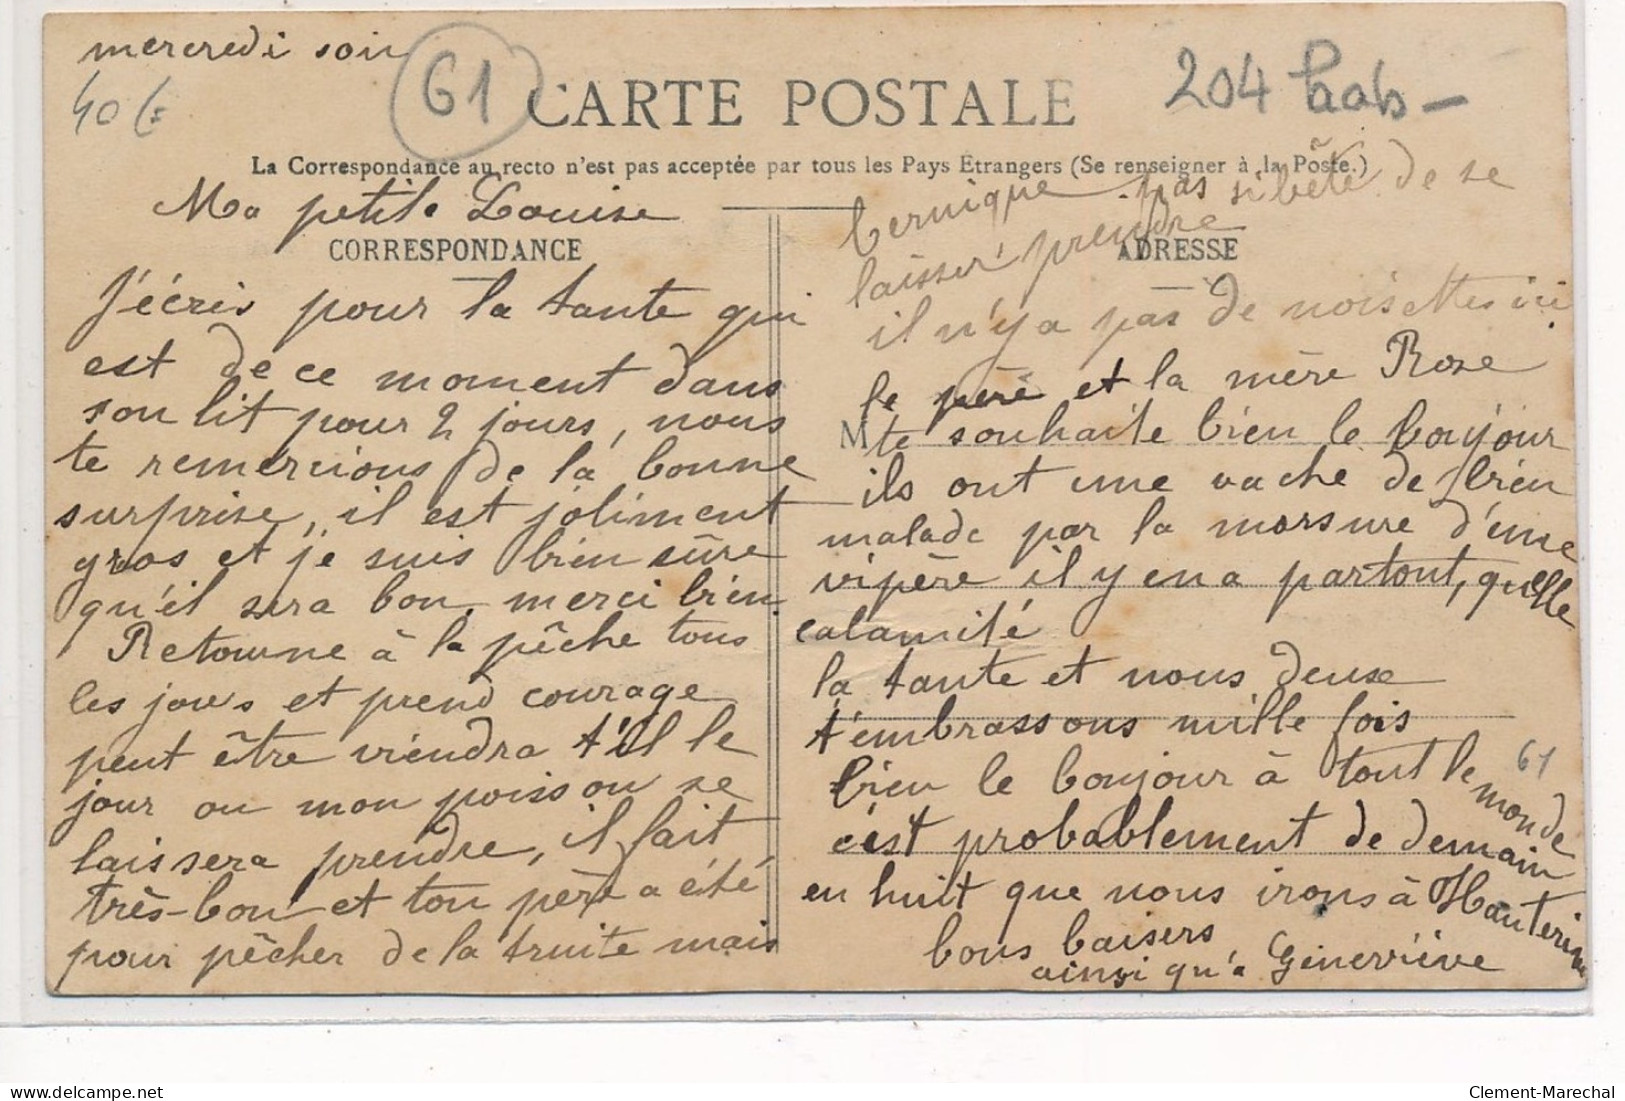 mercredi soir
61
204
40 €
CARTE POSTALE
La Correspondance au recto n'est pas acceptée par tous les Pays Etrangers (Se renseigner à la Poste.)
Ma petite Louise
CORRESPONDANCE
J'écris pour la tante qui
est de ce moment dans
son lit pour 2 jours, nous
te remercions de la bonne
surprise, il est joliment
gros et je suis bien sûre
qu'il sera bon, merci bien.
Retourne à la pêche tous
les jours et prend courage
peut être viendra t'il le
jour ou mon poisson se
laissera prendre, il fait
très-bon et ton père a été
pour pêcher de la truite mais
bernique pas si bête de se
laisser prendre
ADRESSE
il n'y a pas de noisettes ici
le père et la mère Rose
M
te souhaite bien le bonjour
ils ont une vache de bien
malade par la morsure d'une
vipère il y en a partout, quelle
calamité
la tante et nous deux
t'embrassons mille fois
bien le bonjour à tout le monde
61
c'est probablement de demain
en huit que nous irons à Hauterive
bons baisers
ainsi qu'a Geneviève
Clement-Marechal